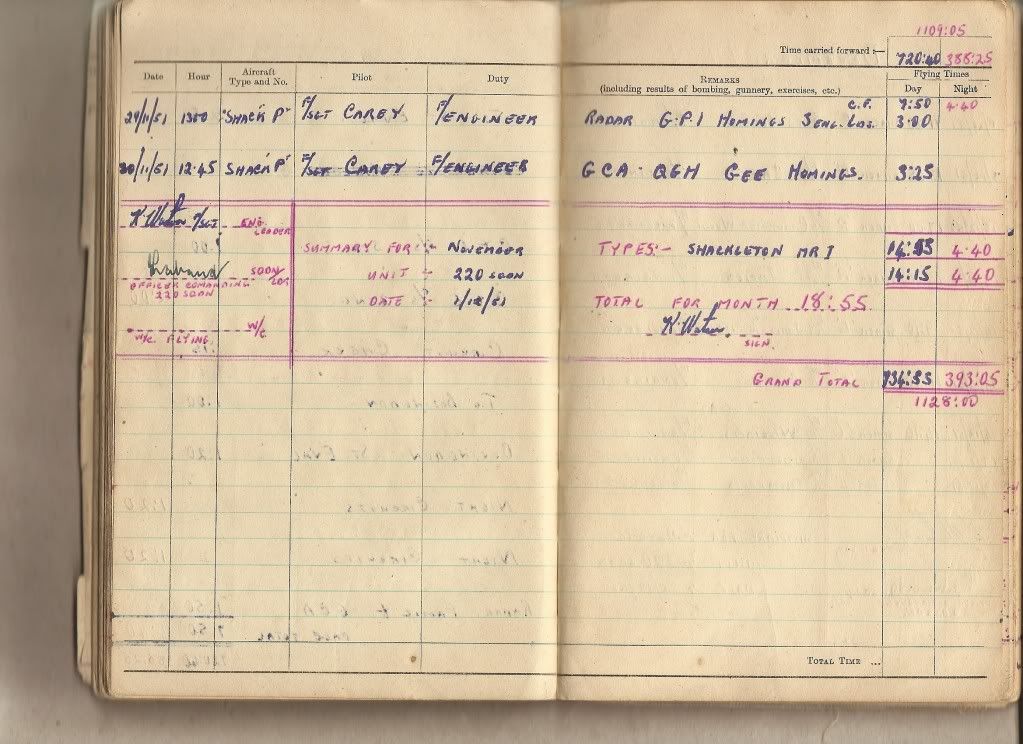 1109:05
Time carried forward :—
720:40 388:25
Date Hour Aircraft Type and No. Pilot Duty
REMARKS (including results of bombing, gunnery, exercises, etc.) Flying Times Day Night
C.F. 7:50 4·40
29/11/51 1300 "SHACK P" F/SGT CAREY F/ENGINEER RADAR G.P.I HOMINGS 3 ENG. LDS. 3:00
30/11/51 12·45 SHACK P" F/SGT CAREY F/ENGINEER GCA · QGH GEE HOMINGS. 3:25
K. Watson F/SGT ENG LEADER
SUMMARY FOR :- NOVEMBER TYPES:- SHACKLETON MR I 4·40
SQDN/LDR UNIT :- 220 SQDN 14:15 4·40
OFFICER COMANDING 220 SQDN
DATE :- 1/12/51 TOTAL FOR MONTH 18:55
K. Watson SIGN.
W/C
W/C. FLYING.
GRAND TOTAL 734:55 393:05
1128:00
TOTAL TIME ...